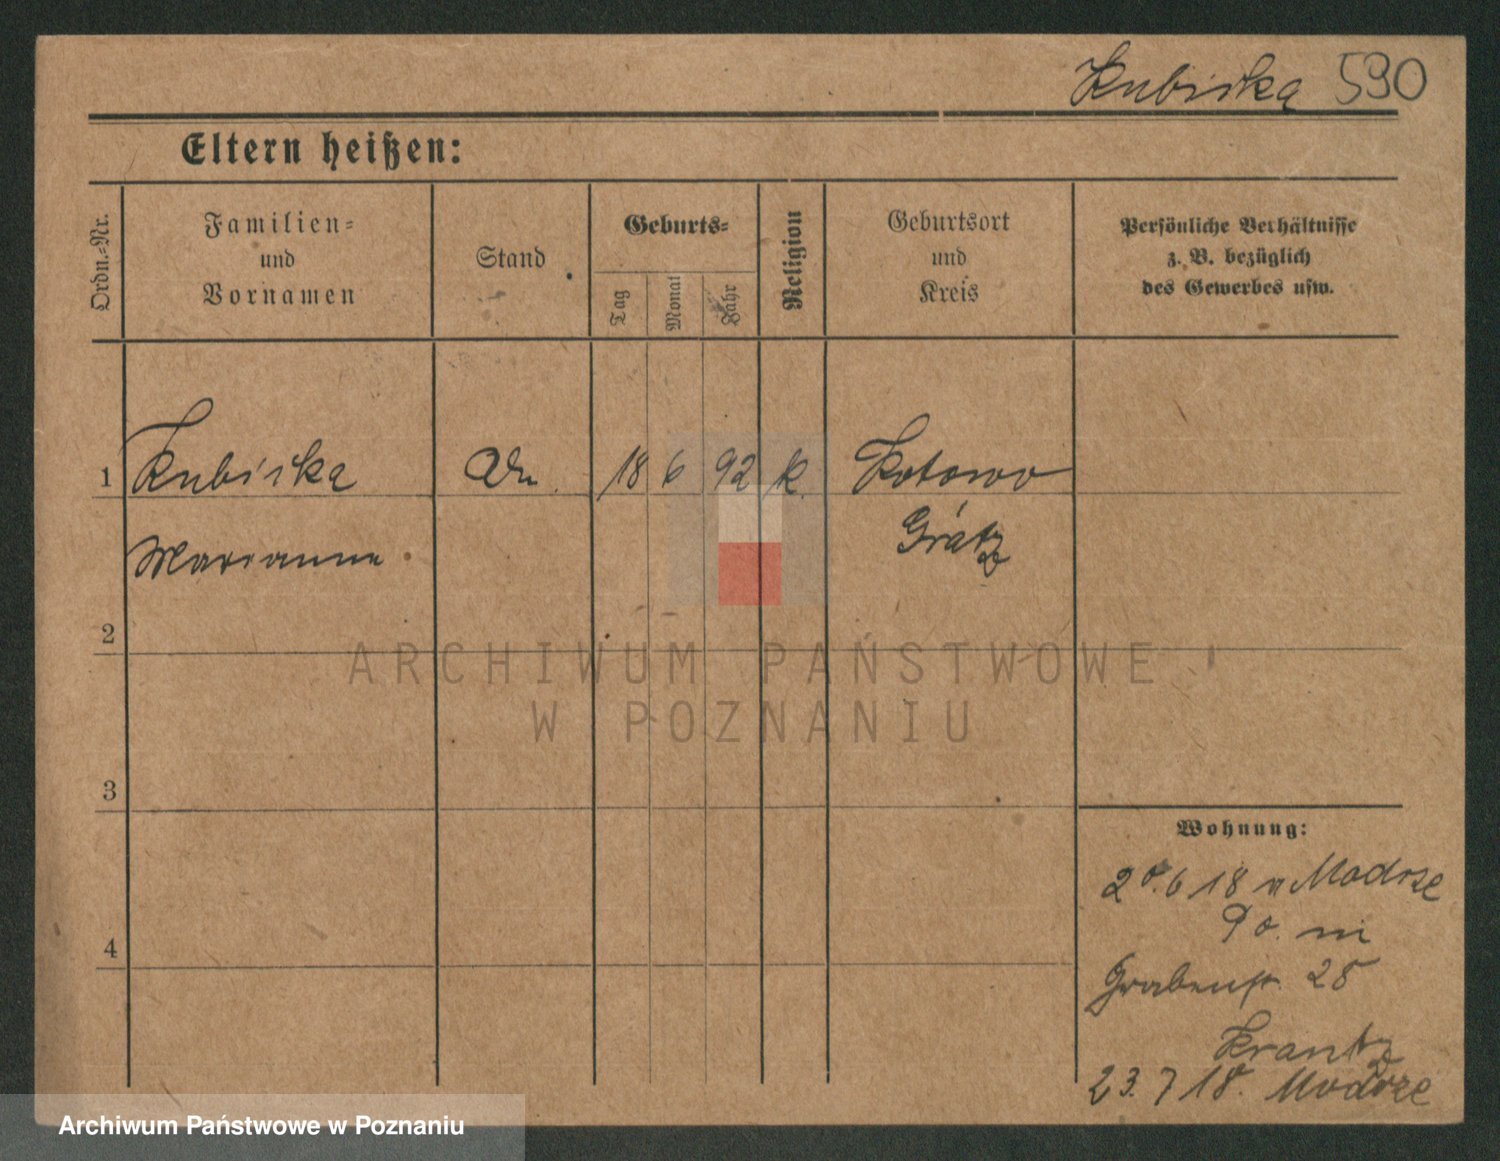 Kubiska 590
Eltern heißen:
Ordn.=Nr.
Familien=
und
Vornamen
Stand
Geburts=
Tag
Monat
Jahr
Religion
Geburtsort
und
Kreis
Persönliche Verhältnisse
z. B. bezüglich
des Gewerbes usw.
1 Kubiska 18 6 92 k. Kotowo
Marianna Grätz
2
ARCHIWUM PAŃSTWOWE
W POZNANIU
3
Wohnung:
20.6 18 v Modrze
4
Grabenstr. 25
Krantz
23. 7 18. Modrze
Archiwum Państwowe w Poznaniu